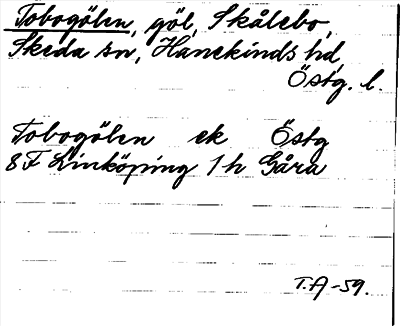 Tobogölen, göl, Skålebo,
Skeda sn, Hanekinds hd,
Östg. l.
Tobogölen ek Östg
8F Linköping 1h Gåra
T.A-59.